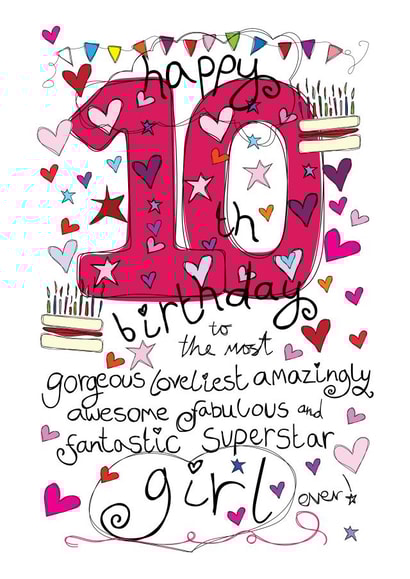 happy
10
th
birthday
to
the most
gorgeous loveliest amazingly
awesome fabulous and
fantastic superstar
girl
ever!